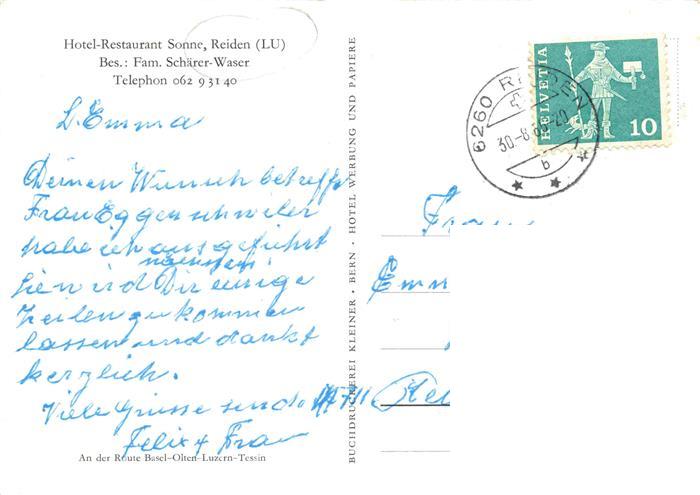 Hotel-Restaurant Sonne, Reiden (LU)
Bes.: Fam. Schärer-Waser
Telephon 062 9 31 40
L. Emma
Deinen Wunsch betreffs
Frau Eggenschwiler
habe ich ausgeführt
nächstens
Sie wird Dir einige
Zeilen zukommen
lassen und dankt
herzlich.
Viele Grüsse send.
Felix & Frau
An der Route Basel-Olten-Luzern-Tessin
BUCHDRUCKEREI KLEINER · BERN · HOTEL WERBUNG UND PAPIERE
6260 REIDEN
30.-8.
b
HELVETIA
10
Frau
Emm